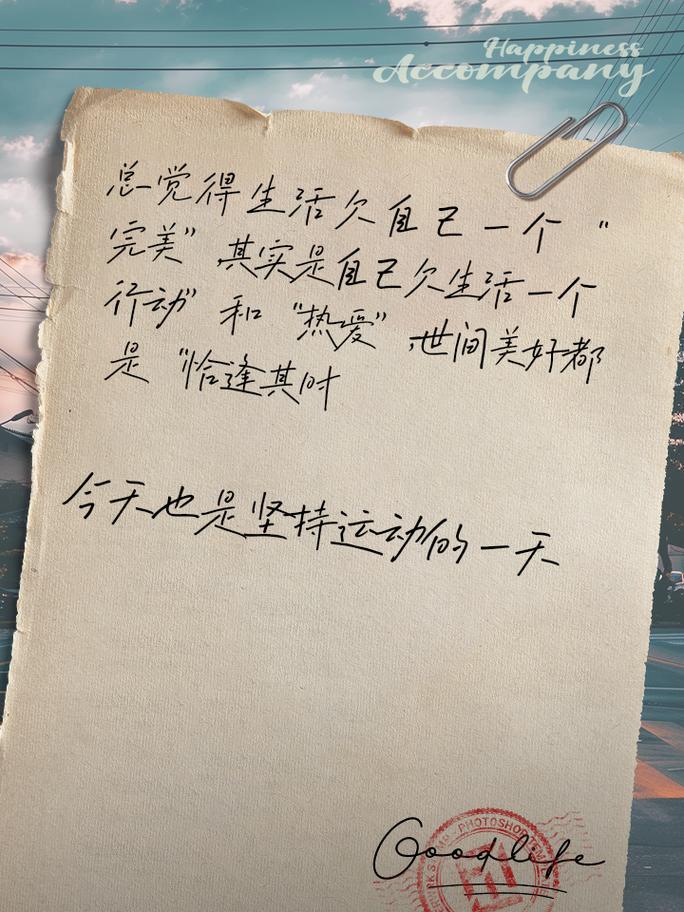 Happiness
Accompany
总觉得生活欠自己一个“
完美”其实是自己欠生活一个
行动”和“热爱”，世间美好都
是“恰逢其时
今天也是坚持运动的一天
PHOTOSHOP
Goodlife